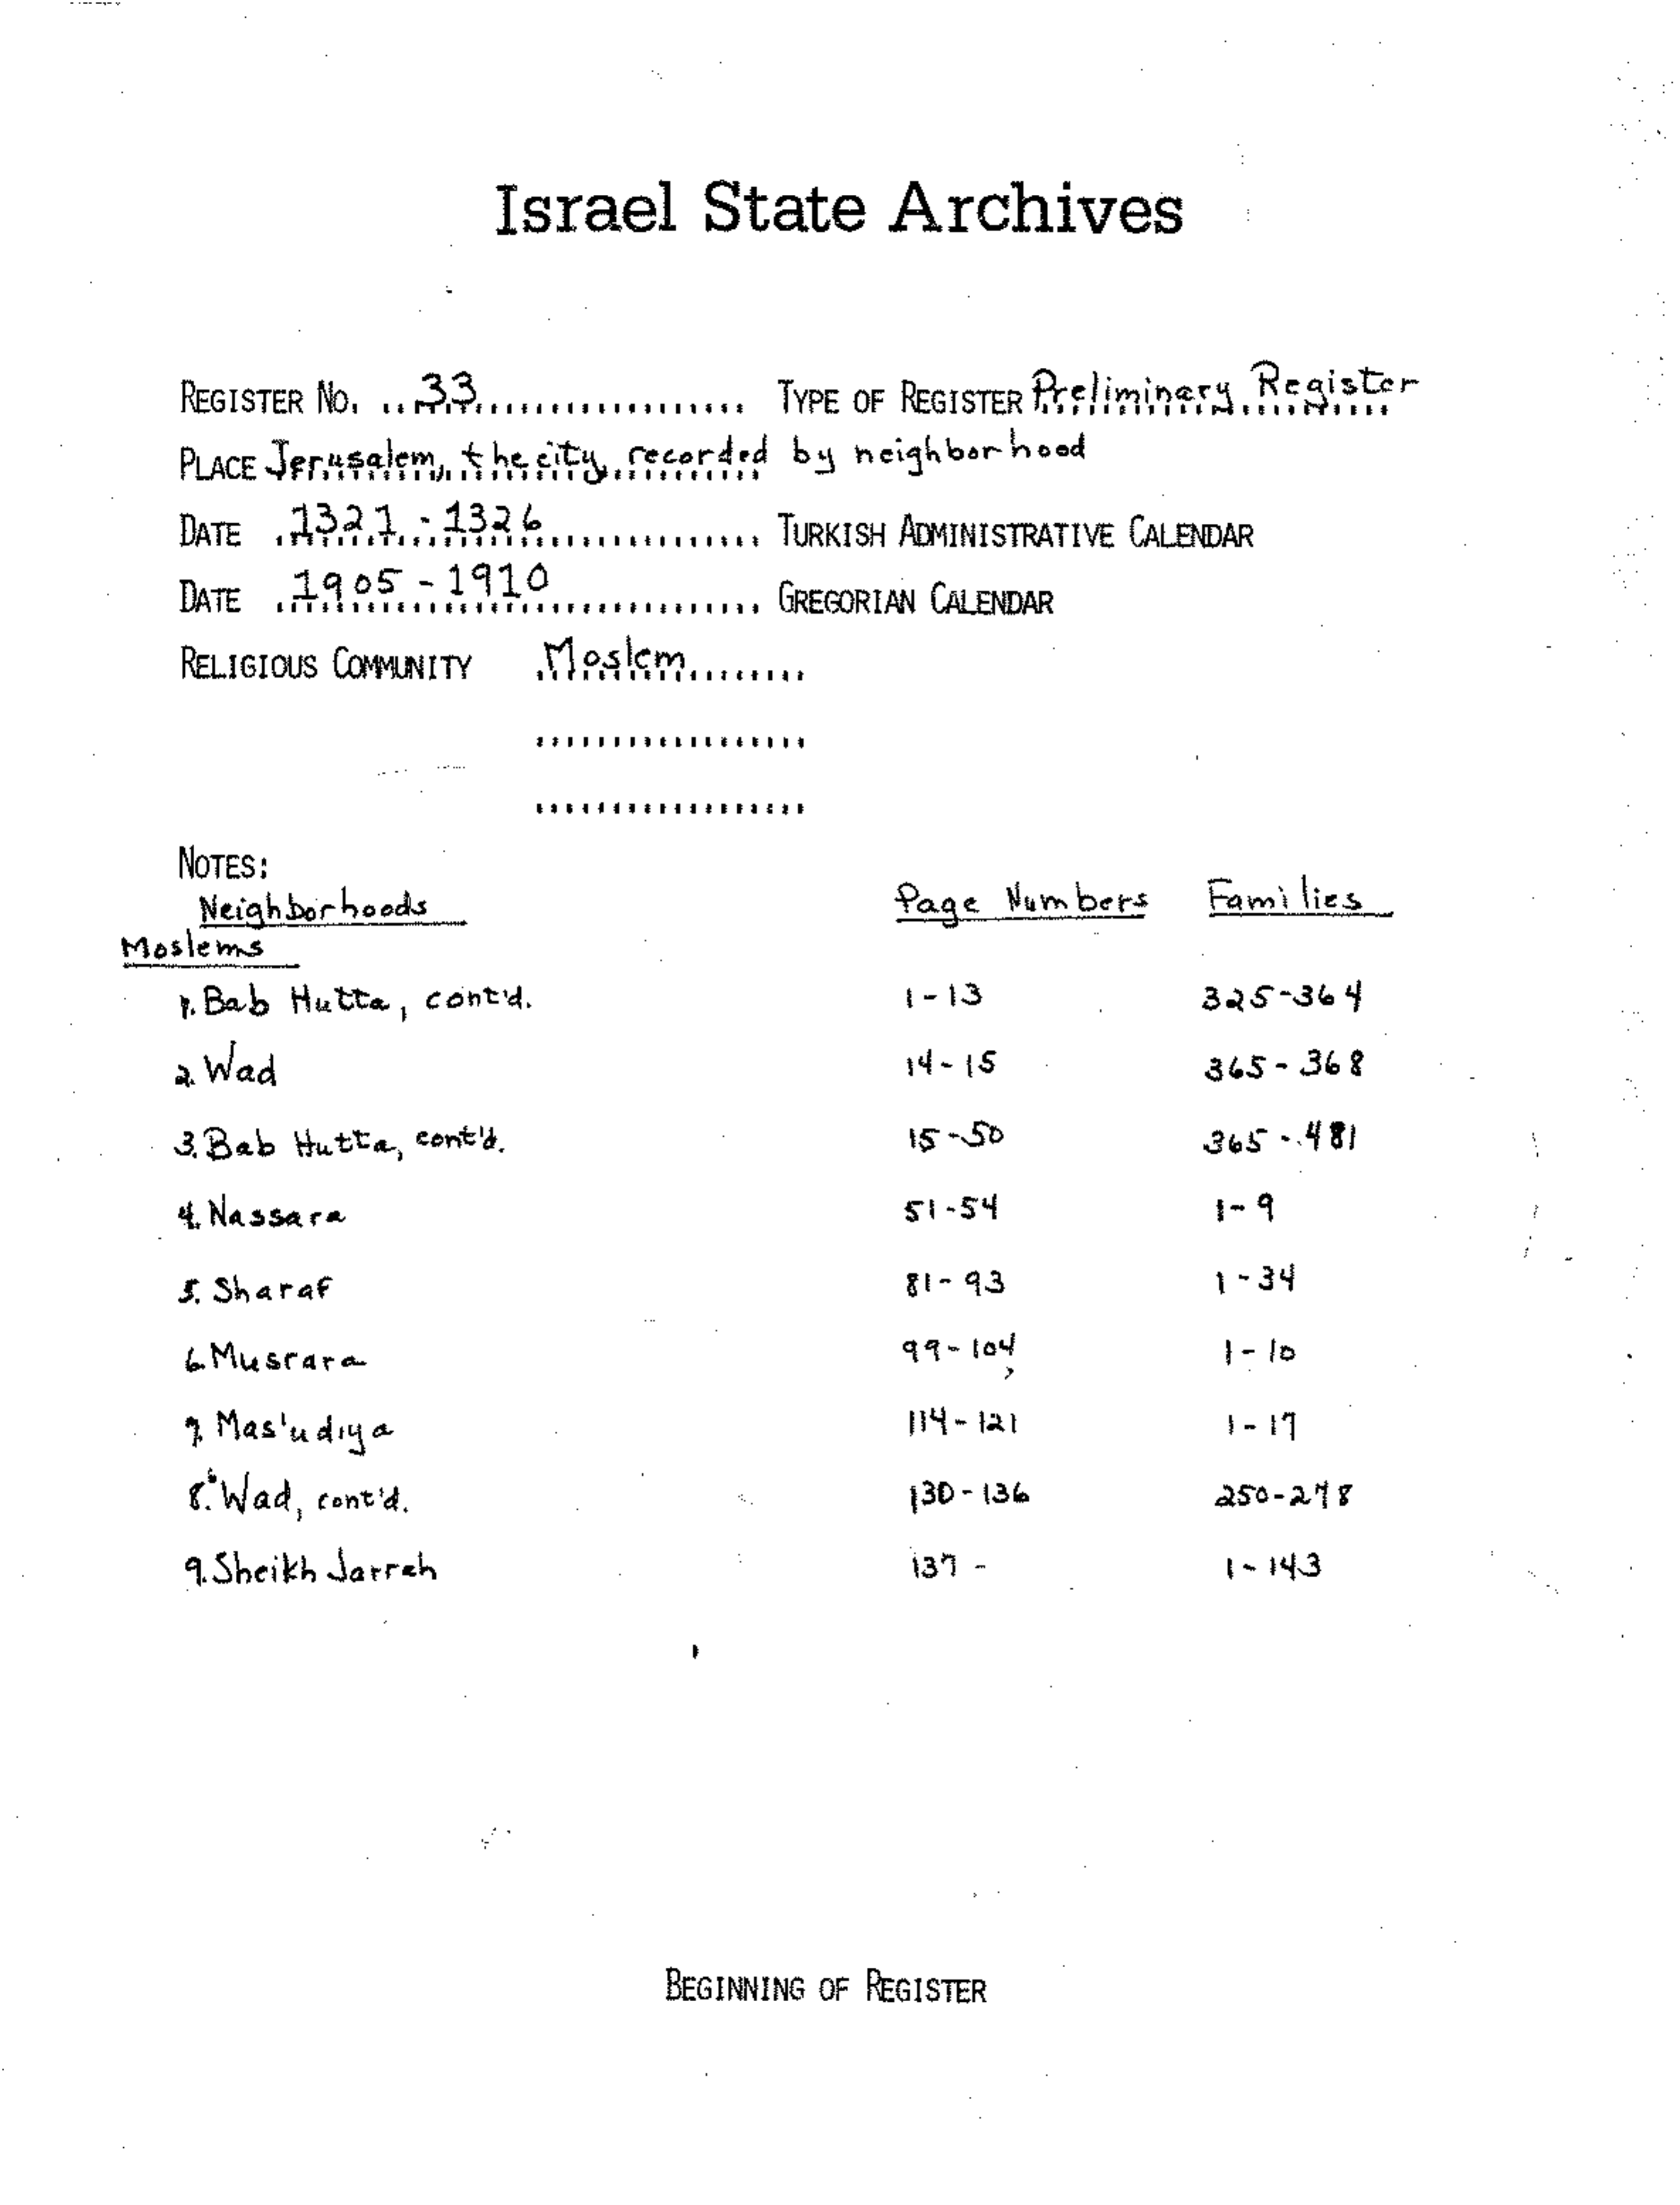 Israel State Archives
REGISTER NO. 33 TYPE OF REGISTER Preliminary Register
PLACE Jerusalem, the city, recorded by neighborhood
DATE 1321 - 1326 TURKISH ADMINISTRATIVE CALENDAR
DATE 1905 - 1910 GREGORIAN CALENDAR
RELIGIOUS COMMUNITY Moslem
NOTES:
Neighborhoods Page Numbers Families
Moslems
1. Bab Hutta, cont'd. 1-13 325-364
2. Wad 14-15 365-368
3. Bab Hutta, cont'd. 15-50 365-481
4. Nassara 51-54 1-9
5. Sharaf 81-93 1-34
6. Musrara 99-104 1-10
7. Mas'udiya 114-121 1-17
8. Wad, cont'd. 130-136 250-278
9. Sheikh Jarrah 137 - 1-143
BEGINNING OF REGISTER